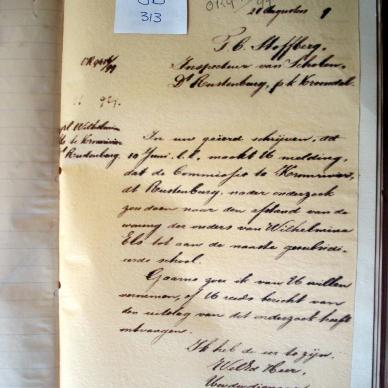 313
28 Augustus 9
T. C. Stoffberg,
Inspecteur van Scholen,
Dt Rustenburg, p.k. Kroondal.
Wilhelmina
Els te
Rustenburg.
In uw geëerd schrijven, dd
10 Juni l.l. maakt U melding,
dat de Commissie te
dt Rustenburg, nader onderzoek
zou doen naar den afstand van de
woning der ouders van Wilhelmina
Els tot aan de naaste gesubsidi-
eerde school.
Gaarne zou ik van UE willen
vernemen, of UE reeds bericht van
den uitslag van dit onderzoek heeft
ontvangen.
Ik heb de eer te zijn,
WelEd Heer,